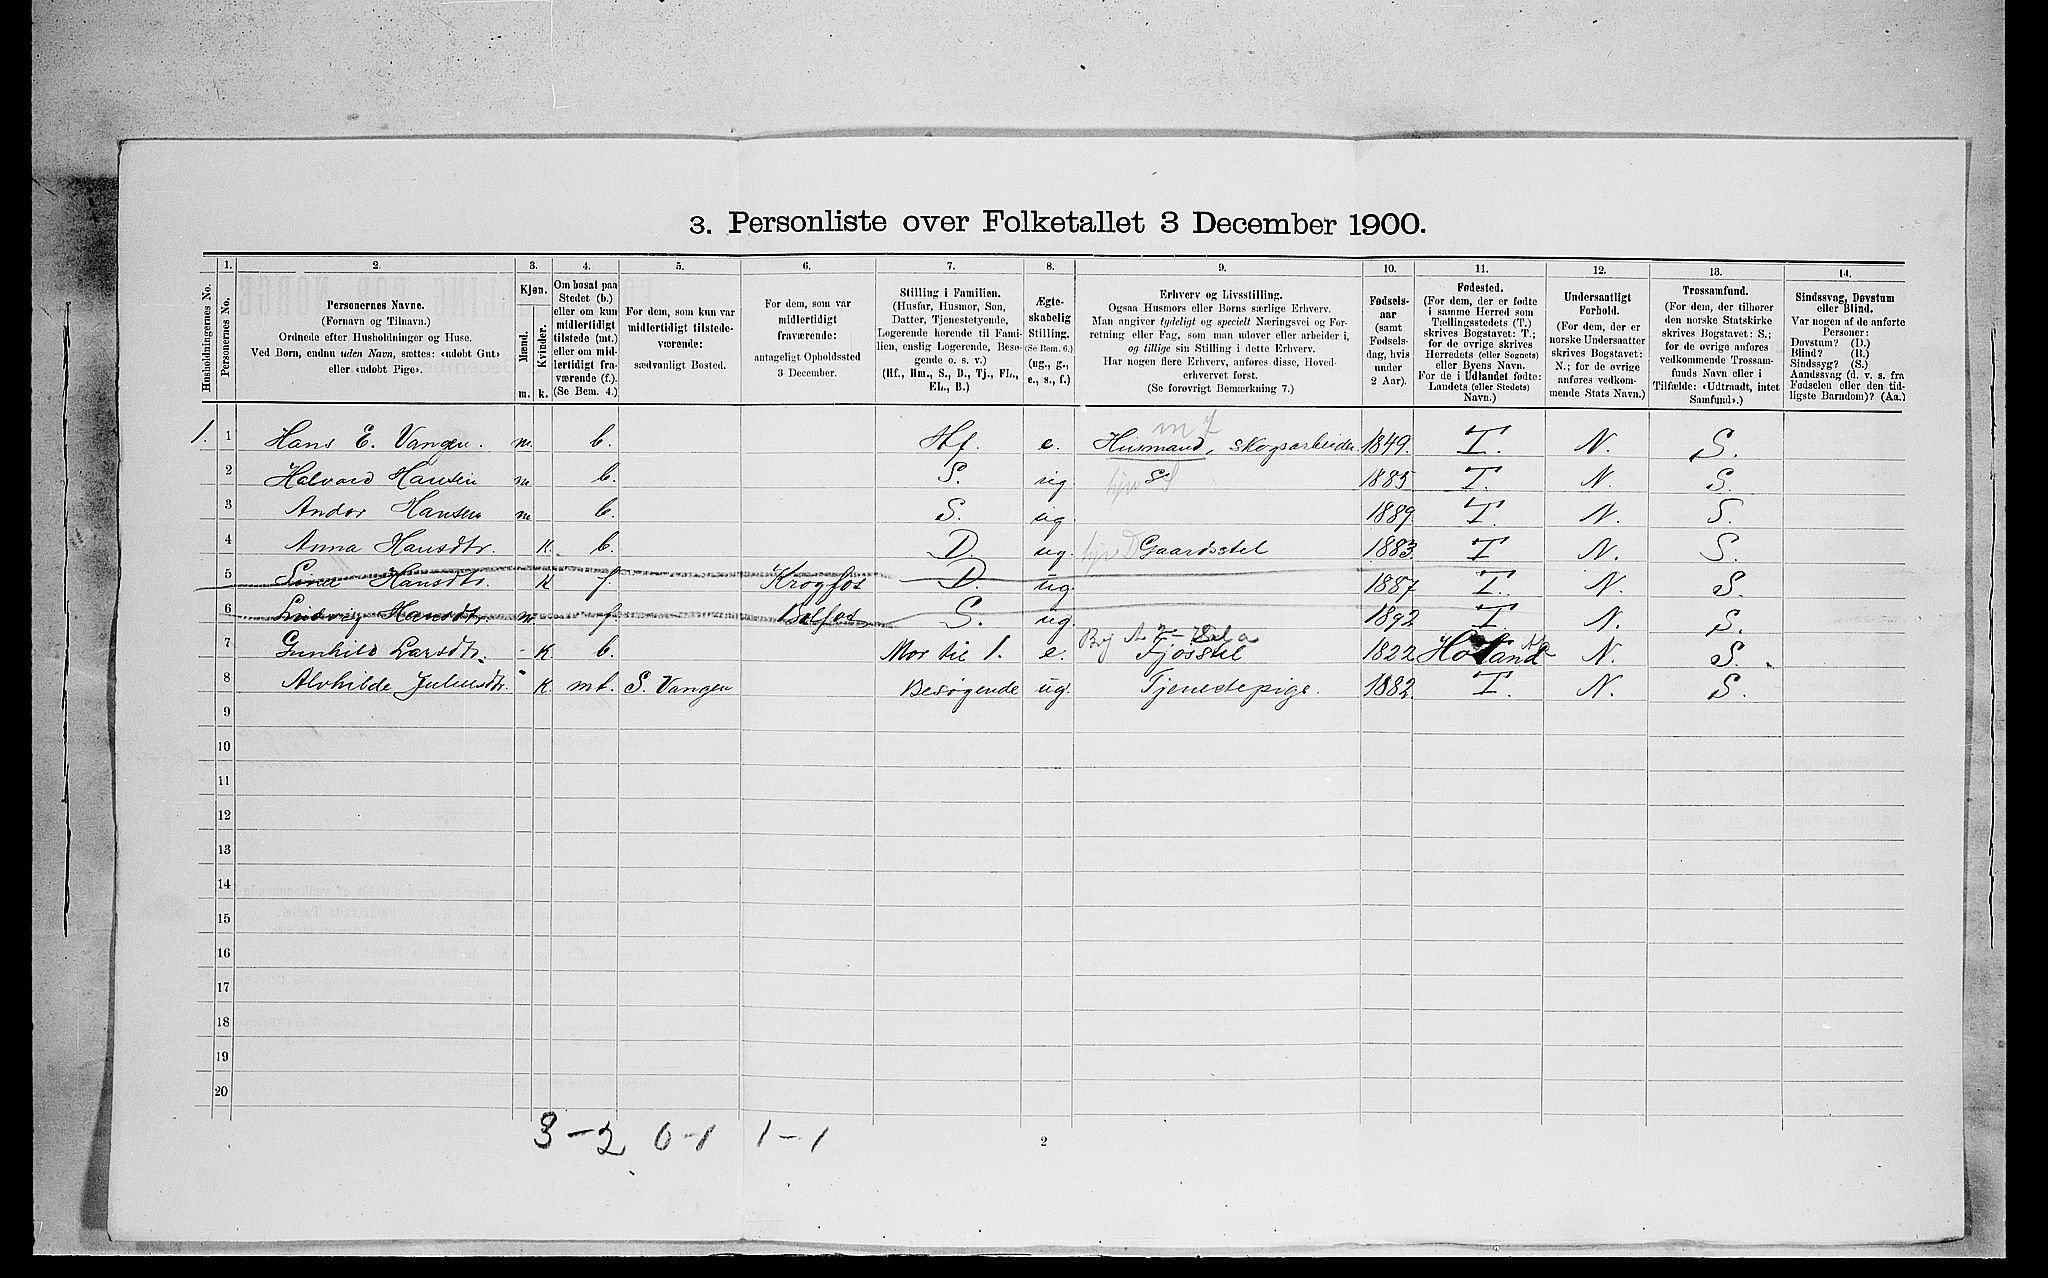 3. Personliste over Folketallet 3 December 1900.
1. 2. 3. 4. 5. 6. 7. 8. 9. 10. 11. 12. 13. 14.
Husholdningernes No.
Personernes No.
Personernes Navne.
(Fornavn og Tilnavn.)
Ordnede efter Husholdninger og Huse.
Ved Børn, endnu uden Navn, sættes: «udøbt Gut»
eller «udøbt Pige».
Kjøn.
Mænd.
Kvinder.
m. k.
Om bosat paa
Stedet (b.)
eller om kun
midlertidigt
tilstede (mt.)
eller om mid-
lertidigt fra-
værende (f.)
(Se Bem. 4.)
For dem, som kun var
midlertidigt tilstede-
værende:
sædvanligt Bosted.
For dem, som var
midlertidigt
fraværende:
antageligt Opholdssted
3 December.
Stilling i Familien.
(Husfar, Husmor, Søn,
Datter, Tjenestetyende,
Logerende hørende til Fami-
lien, enslig Logerende, Besø-
gende o. s. v.)
(Hf., Hm., S., D., Tj., FL.,
EL., B.)
Ægte-
skabelig
Stilling.
(Se Bem. 6.)
(ug., g.,
e., s., f.)
Erhverv og Livsstilling.
Ogsaa Husmors eller Børns særlige Erhverv.
Man angiver tydeligt og specielt Næringsvei og For-
retning eller Fag, som man udøver eller arbeider i,
og tillige sin Stilling i dette Erhverv.
Har nogen flere Erhverv, anføres disse, Hoved-
erhvervet først.
(Se forøvrigt Bemærkning 7.)
Fødsels-
aar
(samt
Fødsels-
dag, hvis
under
2 Aar).
Fødested.
(For dem, der er fødte
i samme Herred som
Tællingsstedets (T.)
skrives Bogstavet: T.;
for de øvrige skrives
Herredets (eller Sognets)
eller Byens Navn.
For de i Udlandet fødte:
Landets (eller Stedets)
Navn.)
Undersaatligt
Forhold.
(For dem, der er
norske Undersaatter
skrives Bogstavet:
N.; for de øvrige
anføres vedkom-
mende Stats Navn.)
Trossamfund.
(For dem, der tilhører
den norske Statskirke
skrives Bogstavet: S.;
for de øvrige anføres
vedkommende Trossam-
funds Navn eller i
Tilfælde: «Udtraadt, intet
Samfund».)
Sindssvag, Døvstum
eller Blind.
Var nogen af de anførte
Personer:
Døvstum? (D.)
Blind? (B.)
Sindssyg? (S.)
Aandssvag (d. v. s. fra
Fødselen eller den tid-
ligste Barndom)? (Aa.)
m 7
1. 1 Hans E. Vangen. m. b. Hf. e. Husmand, Skogsarbeider 1849. T. N. S.
2 Halvard Hansen m b. S. ug S 1885 T. N. S.
3 Andor Hansen m b. S. ug. 1889. T. N. S.
4 Anna Hansdtr. K. b. D ug. hjv D Gaardsstel 1883. T N. S.
5 Hansdtr. K f. Krogfos D. ug. 1887 T. N. S.
6 Ludvig Hansdtr m f. S. ug 1892 T. N. S.
7 Gunhild Larsdtr. K. b. Mor til 1. e. Fjøsstel 1822 Høland N. S.
8 Alvhilde Juliusdtr. K mt. S. Vangen Besøgende ug. Tjenestepige. 1882. T. N. S.
9
10
11
12
13
14
15
16
17
18
19
20
3-2 0-1 1-1
2